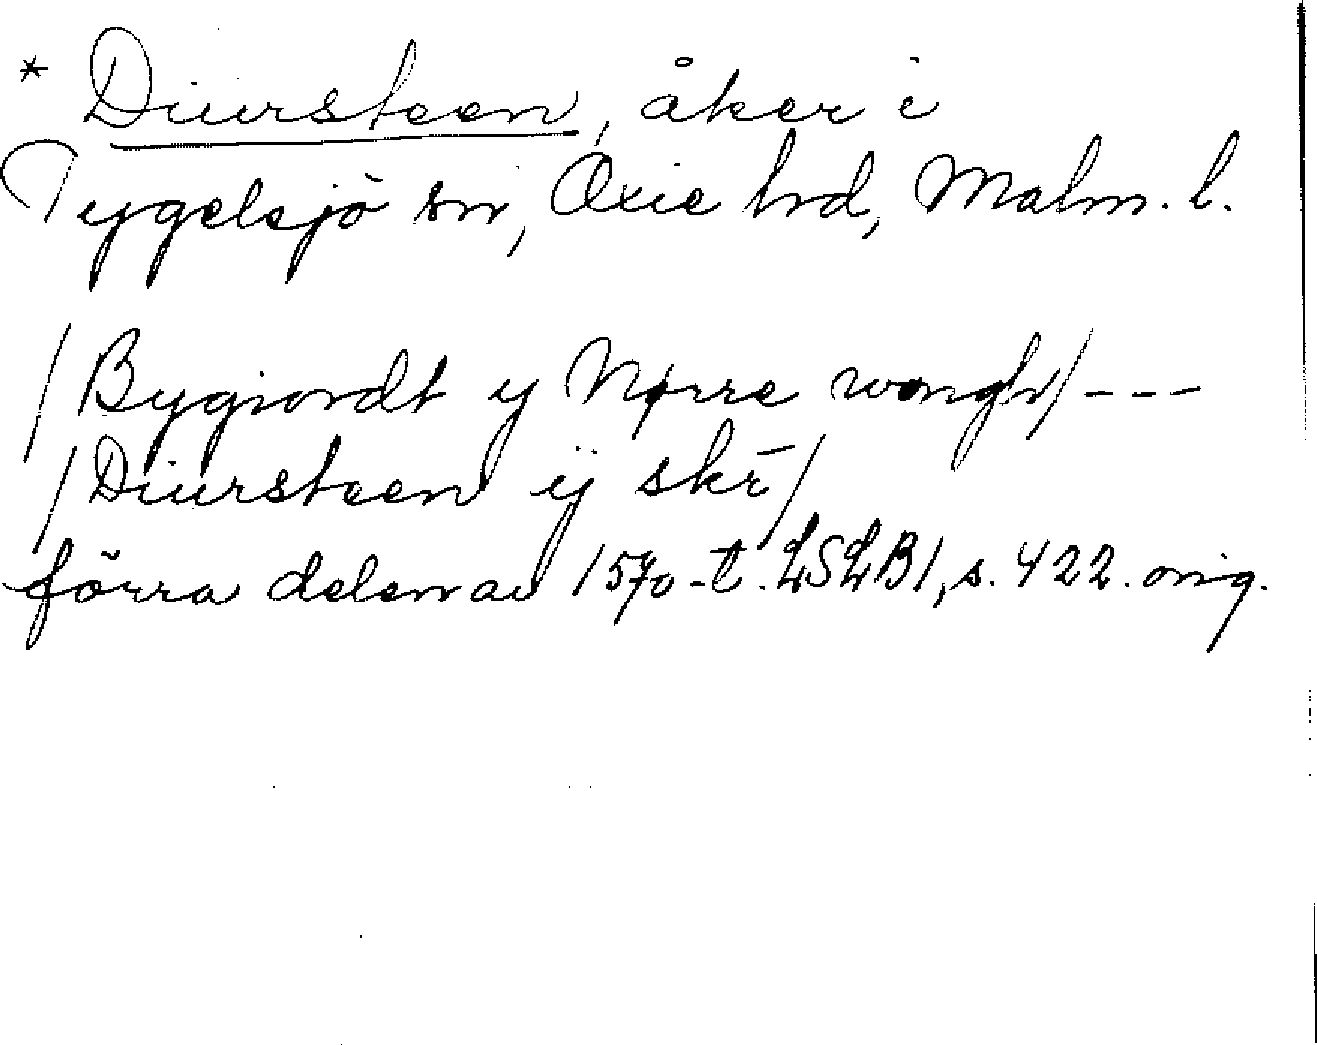 * Diursteen, åker i
Tygelsjö sn, Oxie hd, Malm. l.
/Bygiordt y Nørre wongh/ ---
/Diursteen ÿ skr̄/
förra delen av 1570-t. LSLB1, s. 422. orig.